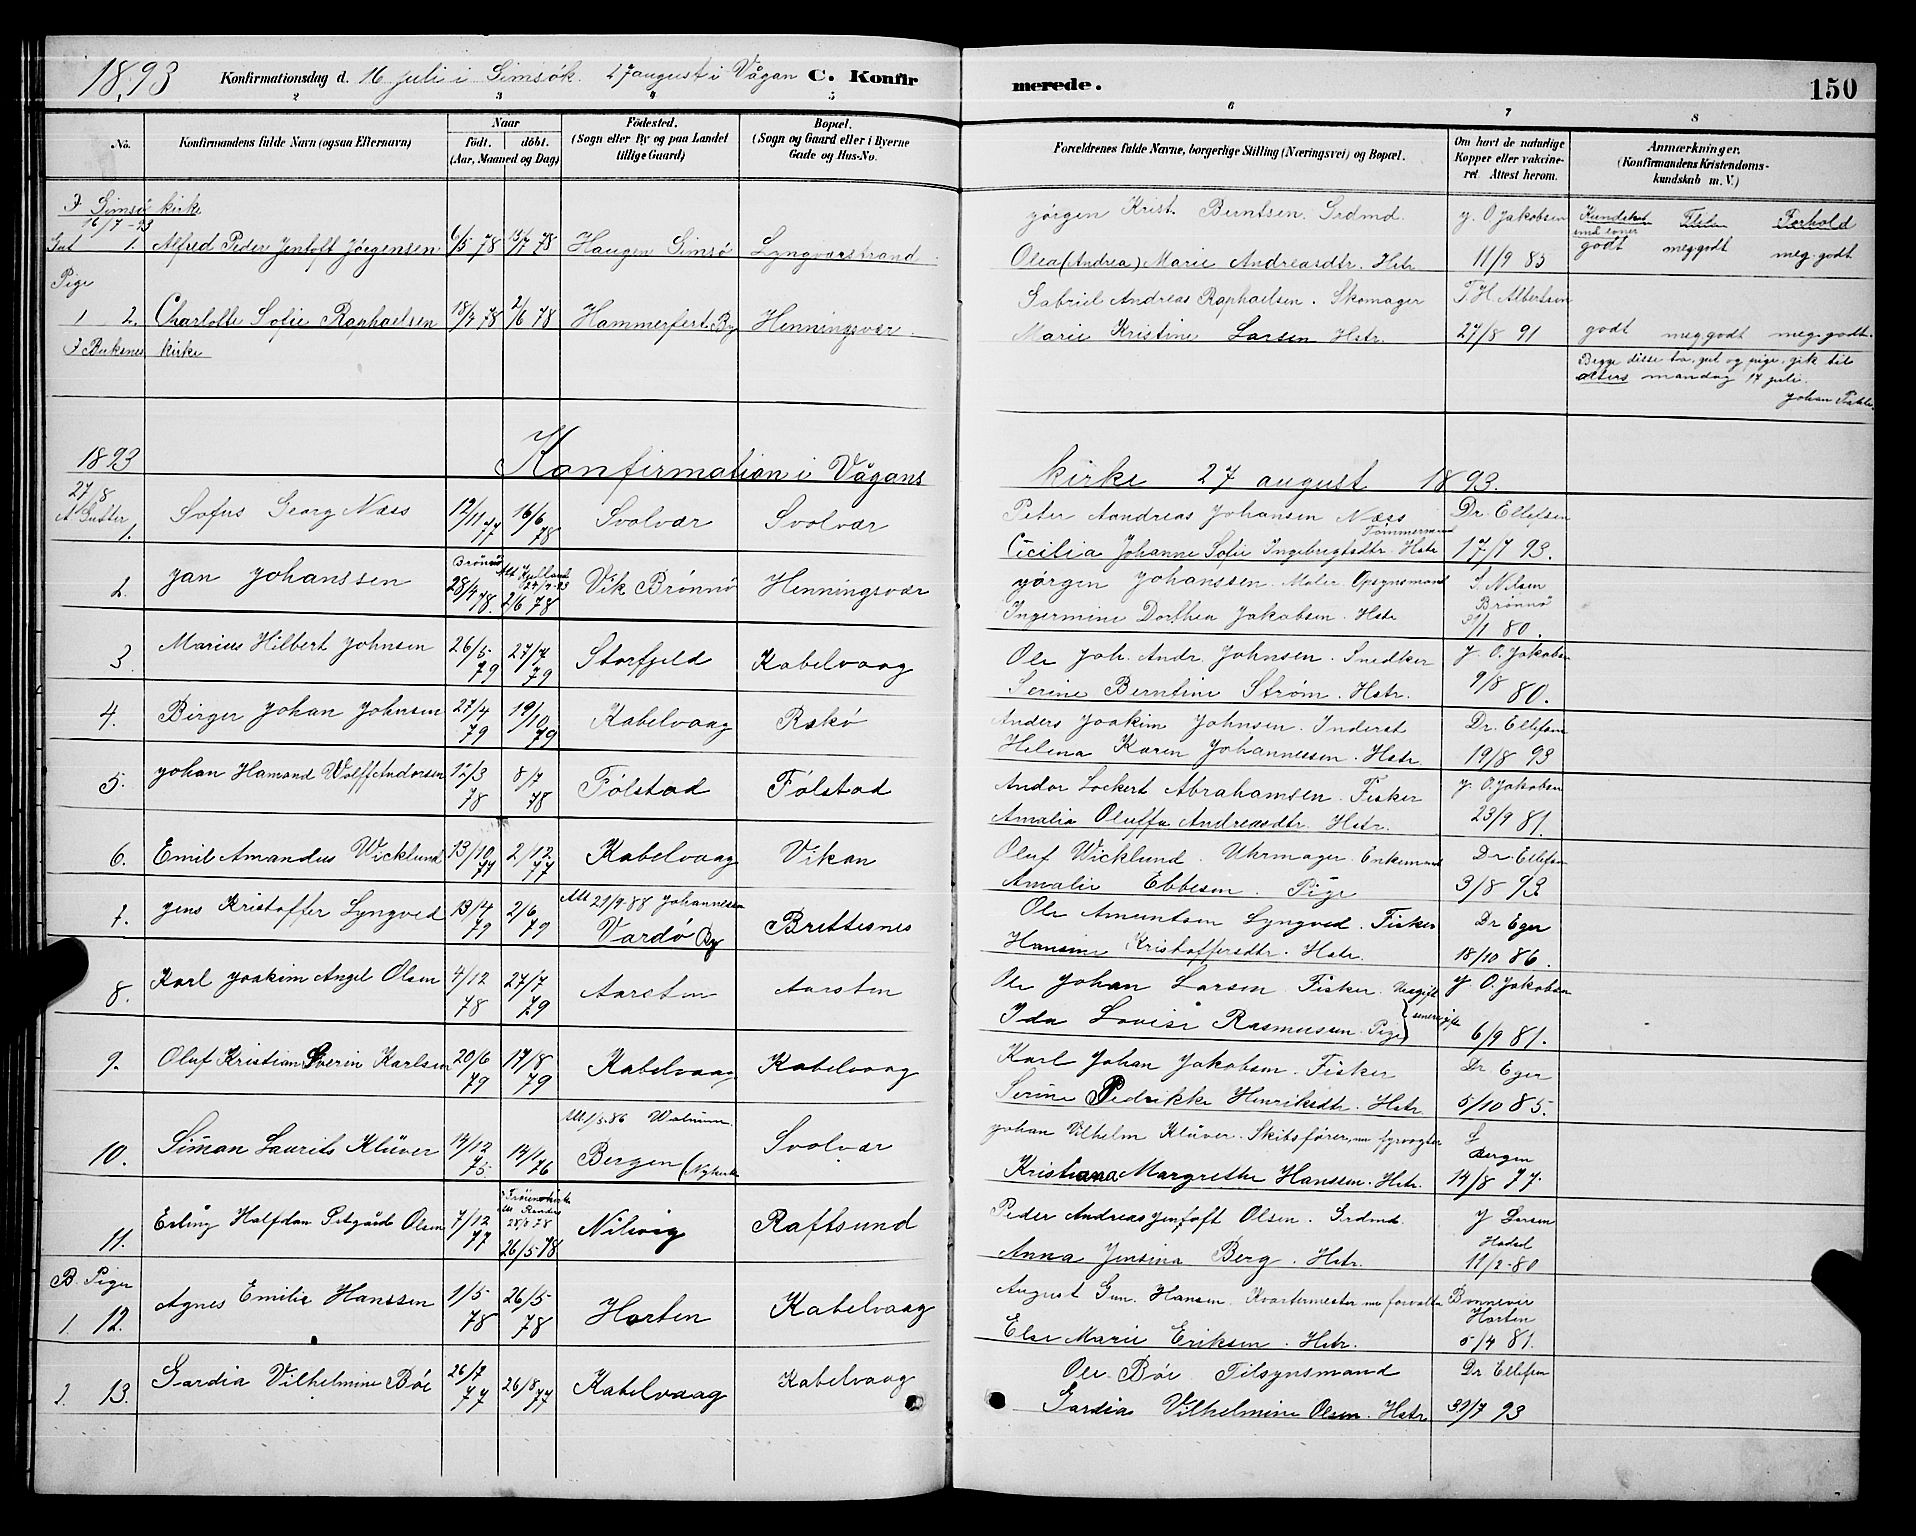 1893 Konfirmationsdag d. 16 juli i Gimsøk. 27 august i Vågan C. Konfirmerede. 150
2 3 4 5 6 7 8
No. Konfirmandens fulde Navn (ogsaa Efternavn) Naar Født. døbt. (Aar, Maaned og Dag) Fødested. (Sogn eller By og paa Landet tillige Gaard) Bopæl. (Sogn og Gaard eller i Byerne Gade og Hus-No. Forældrenes fulde Navne, borgerlige Stilling (Næringsvei) og Bopæl. Om havt de naturlige Kopper eller vakcineret. Attest herom. Anmærkninger. (Konfirmandens Kristendomskundskab m. V.)
I Gimsø kirke
16/7-93
Jørgen Krist. Berntsen. Grdmd. J. O. Jakobsen Kundskab Flid Forhold
Gut 1. Alfred Peder Jentoft Jørgensen 6/5 78 13/7 78 Haugen Gimsø Lyngværstrand Olea (Andrea) Marie Andreasdtr. Hstr. 11/9 85 godt meg.godt meg.godt
Pige
Gabriel Andreas Raphaelsen. Skomager T. H. Albertsen
1 2. Charlotte Sofie Raphaelsen 18/4 78 2/6 78 Hammerfest By Henningsvær Marie Kristine Larsen Hstr. 27/8 91 godt meg.godt meg.godt.
I Buksnes kirke
Begge disse to, gut og pige, gik til
alters mandag 17 juli.
1893 Konfirmation i Vågans kirke 27 august 1893.
27/8
A. Gutter
1. Sofus Georg Næss 12/11 77 16/6 78 Svolvær Svolvær Peter Andreas Johansen Næss Tømmermand Dr. Ellefsen
Cicilia Johanne Sofie Ingebrigtsdtr. Hstr. 17/7 93.
2. Jan Johanssen Brønnø 28/4 78. 2/6 78 Vik Brønnø Henningsvær Jørgen Johanssen. Maler Opsynsmand S. Nilsen Brønnø
Ingermine Dorthea Jakobsen. Hstr. 31/1 80.
3. Marius Hilbert Johnsen 26/5 79 27/7 79 Storfjeld Kabelvaag Ole Joh. Andr. Johnsen. Snedker J. O. Jakobsen
Serine Berntine Strøm. Hstr. 9/8 80.
4. Birger Johan Johnsen 27/4 79 19/10 79 Kabelvaag Risø Anders Joakim Johnsen. Inderst Dr. Ellefsen
Helena Karen Johannessen. Hstr. 19/8 93
5. Johan Hamond Wolff Andorsen 12/3 78 8/7 78 Følstad Følstad Andor Lockert Abrahamsen. Fisker J. O. Jakobsen
Amalia Oluffa Andreasdtr. Hstr. 23/9 81.
6. Emil Amandus Wicklund 13/10 77 2/12 77 Kabelvaag Vikan Oluf Wicklund. Uhrmager. Enkemand Dr. Ellefsen
Amalie Ebbesen. Pige 3/8 93
7. Jens Kristoffer Lyngved 13/4 79 2/6 79 Att 21/9-88 Johannessen Vardø By Brettesnes Ole Amuntsen Lyngved. Fisker Dr Eger
Hansine Kristoffersdtr. Hstr. 18/10 86.
8. Karl Joakim Angel Olsen 4/12 78 27/7 79 Aarsten Aarsten Ole Johan Larsen Fisker. Ugift J. O. Jakobsen
Ida Lovise Rasmussen. Pige senere gifte 6/9 81.
9. Oluf Kristian Severin Karlsen 20/6 79 17/8 79 Kabelvaag Kabelvaag Karl Johan Jakobsen. Fisker Dr. Eger
Serine Pedrikke Henriksdtr. Hstr. 5/10 85.
10. Siman Laurits Klüver 14/12 75. 14/1 76 Bergen (Nykirke Svolvær Johan Vilhelm Klüver. Skibsfører, nu fyrvogter Bergen
Kristiana Margrethe Hansen. Hstr. 14/8 77.
11. Erling Halfdan Sitgård Olsen 7/12 77 26/5 78 Nilsvig Raftsund Peder Andreas Jentoft Olsen. Grdmd. J Larsen Hadsel
Anna Jensina Berg. Hstr. 11/2-80
B. Piger
1. 12. Agnes Emilie Hanssen 1/5 78 26/5 78 Horten Kabelvaag August Gun. Hansen. Kvartermester nu forvalter Bonnevie Horten
Else Marie Eriksen. Hstr. 5/4 81.
2. 13. Gardia Vilhelmine Bøe 26/7 77 26/8 77 Kabelvaag Kabelvaag Ole Bøe Tilsynsmand Dr Ellefsen
Gardia Vilhelmine Olsen. Hstr 31/7 93